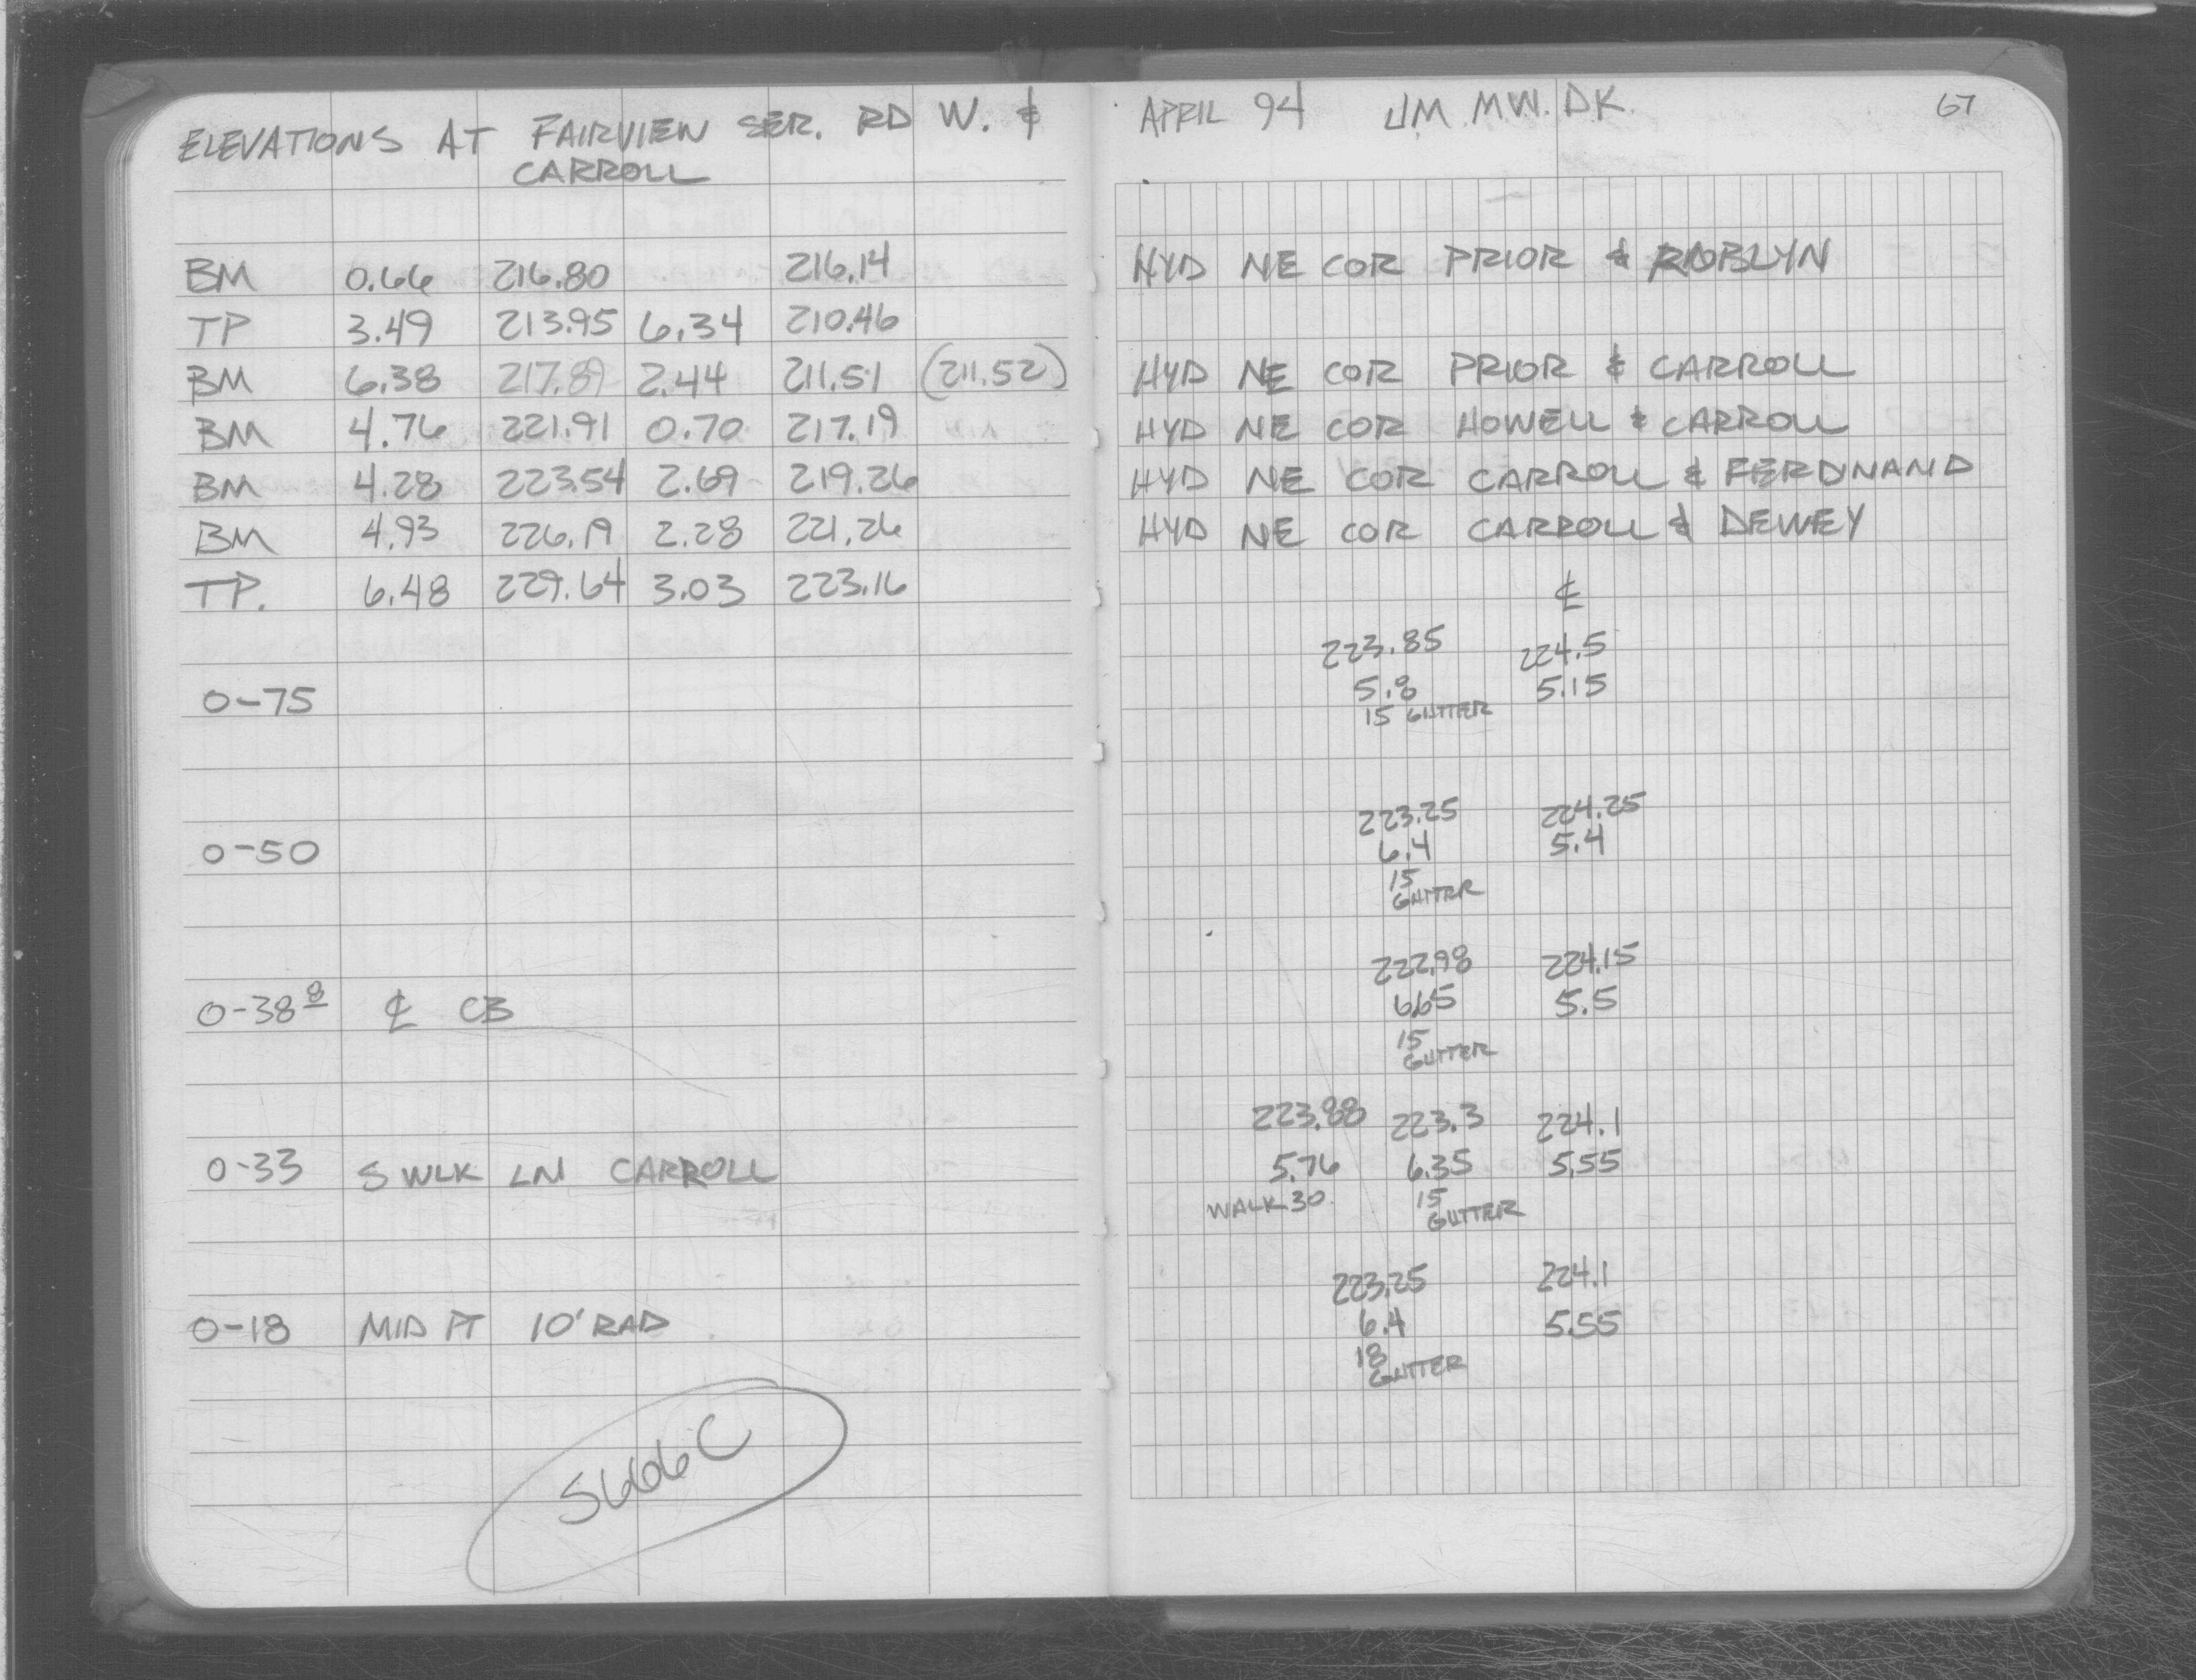 ELEVATIONS AT FAIRVIEW SER. RD W. &
CARROLL
BM 0.66 216.80 216.14
TP 3.49 213.95 6.34 210.46
BM 6.38 217.89 2.44 211.51 (211.52)
BM 4.76 221.91 0.70 217.19
BM 4.28 223.54 2.69 219.26
BM 4.93 226.19 2.28 221.26
TP. 6.48 229.64 3.03 223.16
0-75
0-50
0-38 8 ℄ CB
0-33 S WLK LN CARROLL
0-18 MID PT 10' RAD
5666C
APRIL 94 JM. MW. DK. 67
HYD NE COR PRIOR & ROBLYN
HYD NE COR PRIOR & CARROLL
HYD NE COR HOWELL & CARROLL
HYD NE COR CARROLL & FERDINAND
HYD NE COR CARROLL & DEWEY
℄
223.85 224.5
5.8 5.15
15 GUTTER
223.25 224.25
6.4 5.4
15
GUTTER
222.98 224.15
6.65 5.5
15
GUTTER
223.88 223.3 224.1
5.76 6.35 5.55
WALK 30. 15
GUTTER
223.25 224.1
6.4 5.55
18
GUTTER